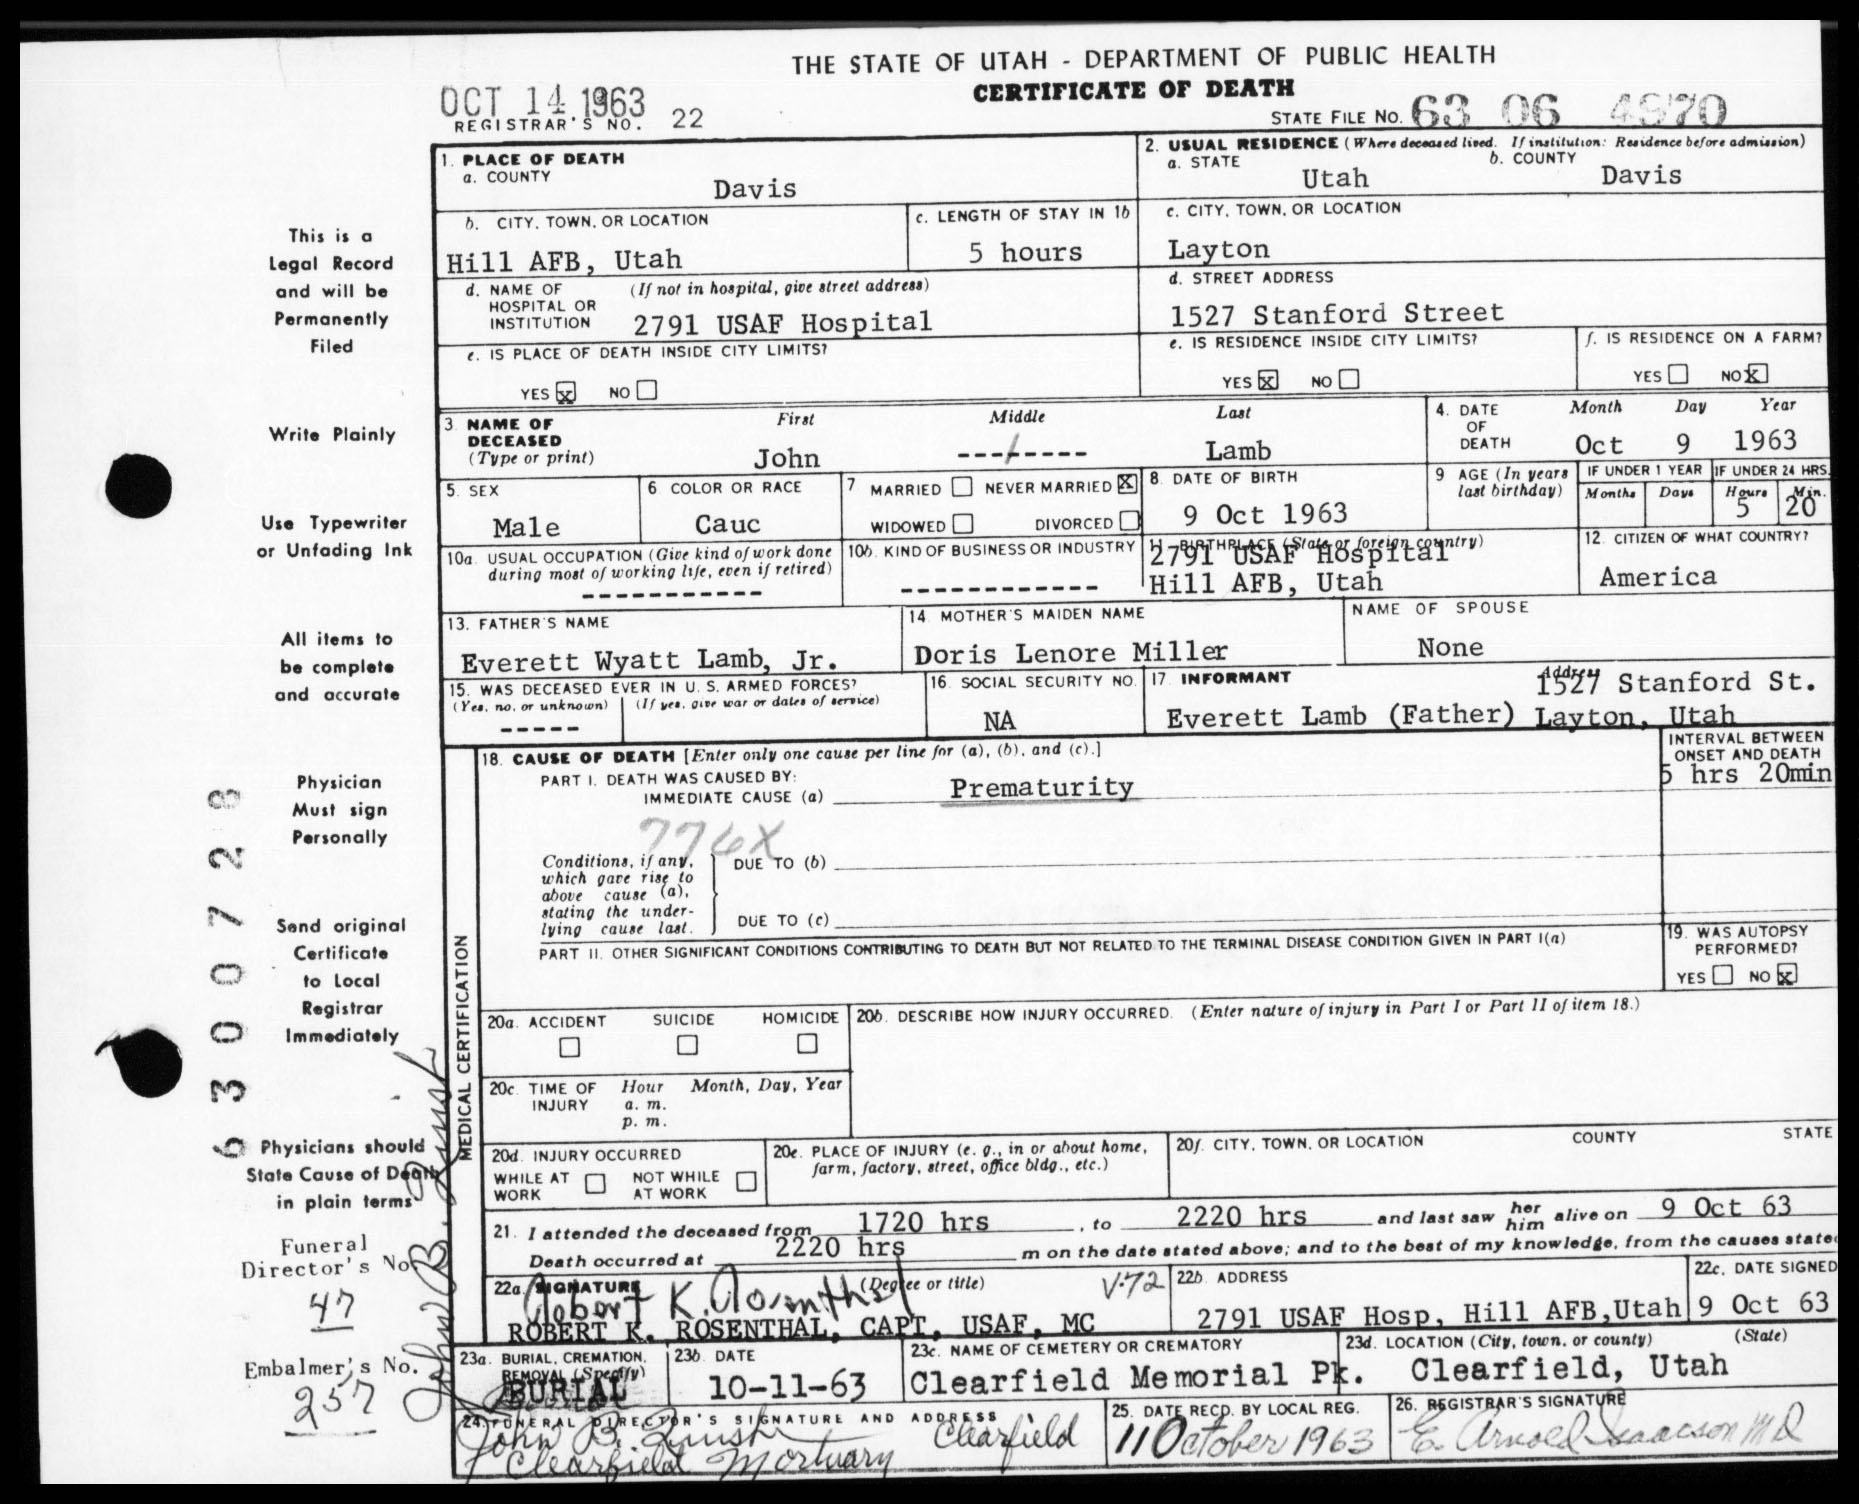 THE STATE OF UTAH - DEPARTMENT OF PUBLIC HEALTH
CERTIFICATE OF DEATH
OCT 14 1963
REGISTRAR'S NO. 22
STATE FILE NO. 63 06 4870
This is a
Legal Record
and will be
Permanently
Filed
Write Plainly
Use Typewriter
or Unfading Ink
All items to
be complete
and accurate
Physician
Must sign
Personally
Send original
Certificate
to Local
Registrar
Immediately
Physicians should
State Cause of Death
in plain terms
Funeral
Director's No.
47
Embalmer's No.
257
6300728
1. PLACE OF DEATH
a. COUNTY
Davis
2. USUAL RESIDENCE (Where deceased lived. If institution: Residence before admission)
a. STATE
Utah
b. COUNTY
Davis
b. CITY, TOWN, OR LOCATION
Hill AFB, Utah
c. LENGTH OF STAY IN 1b
5 hours
c. CITY, TOWN, OR LOCATION
Layton
d. NAME OF HOSPITAL OR INSTITUTION (If not in hospital, give street address)
2791 USAF Hospital
d. STREET ADDRESS
1527 Stanford Street
e. IS PLACE OF DEATH INSIDE CITY LIMITS?
YES x NO
e. IS RESIDENCE INSIDE CITY LIMITS?
YES x NO
f. IS RESIDENCE ON A FARM?
YES NO x
3. NAME OF DECEASED (Type or print)
First Middle Last
John -------- Lamb
4. DATE OF DEATH
Month Day Year
Oct 9 1963
5. SEX
Male
6. COLOR OR RACE
Cauc
7 MARRIED NEVER MARRIED X
WIDOWED DIVORCED
8. DATE OF BIRTH
9 Oct 1963
9 AGE (In years last birthday)
IF UNDER 1 YEAR IF UNDER 24 HRS.
Months Days Hours Min.
5 20
10a. USUAL OCCUPATION (Give kind of work done during most of working life, even if retired)
-----------
10b. KIND OF BUSINESS OR INDUSTRY
------------
11. BIRTHPLACE (State or foreign country)
2791 USAF Hospital
Hill AFB, Utah
12. CITIZEN OF WHAT COUNTRY?
America
13. FATHER'S NAME
Everett Wyatt Lamb, Jr.
14. MOTHER'S MAIDEN NAME
Doris Lenore Miller
NAME OF SPOUSE
None
15. WAS DECEASED EVER IN U. S. ARMED FORCES?
(Yes, no, or unknown) (If yes, give war or dates of service)
-----
16. SOCIAL SECURITY NO.
NA
17. INFORMANT Address
1527 Stanford St.
Everett Lamb (Father) Layton, Utah
18. CAUSE OF DEATH [Enter only one cause per line for (a), (b), and (c).]
INTERVAL BETWEEN ONSET AND DEATH
PART I. DEATH WAS CAUSED BY:
IMMEDIATE CAUSE (a) Prematurity
5 hrs 20min
776X
Conditions, if any, which gave rise to above cause (a), stating the underlying cause last.
DUE TO (b)
DUE TO (c)
PART II. OTHER SIGNIFICANT CONDITIONS CONTRIBUTING TO DEATH BUT NOT RELATED TO THE TERMINAL DISEASE CONDITION GIVEN IN PART I(a)
19. WAS AUTOPSY PERFORMED?
YES NO x
MEDICAL CERTIFICATION
20a. ACCIDENT SUICIDE HOMICIDE
20b. DESCRIBE HOW INJURY OCCURRED. (Enter nature of injury in Part I or Part II of item 18.)
20c. TIME OF INJURY Hour Month, Day, Year
a. m.
p. m.
20d. INJURY OCCURRED
WHILE AT WORK NOT WHILE AT WORK
20e. PLACE OF INJURY (e. g., in or about home, farm, factory, street, office bldg., etc.)
20f. CITY, TOWN, OR LOCATION COUNTY STATE
21. I attended the deceased from 1720 hrs, to 2220 hrs and last saw her him alive on 9 Oct 63
Death occurred at 2220 hrs m on the date stated above; and to the best of my knowledge, from the causes state
22a. SIGNATURE (Degree or title)
Robert K. Rosenthal V-72
ROBERT K. ROSENTHAL, CAPT, USAF, MC
22b. ADDRESS
2791 USAF Hosp, Hill AFB,Utah
22c. DATE SIGNED
9 Oct 63
23a. BURIAL, CREMATION, REMOVAL (Specify)
BURIAL
23b. DATE
10-11-63
23c. NAME OF CEMETERY OR CREMATORY
Clearfield Memorial Pk.
23d. LOCATION (City, town, or county) (State)
Clearfield, Utah
24. FUNERAL DIRECTOR'S SIGNATURE AND ADDRESS
John B. Clearfield
Clearfield Mortuary
25. DATE RECD. BY LOCAL REG.
11 October 1963
26. REGISTRAR'S SIGNATURE
E. Arnold Isaacson MD
John B.